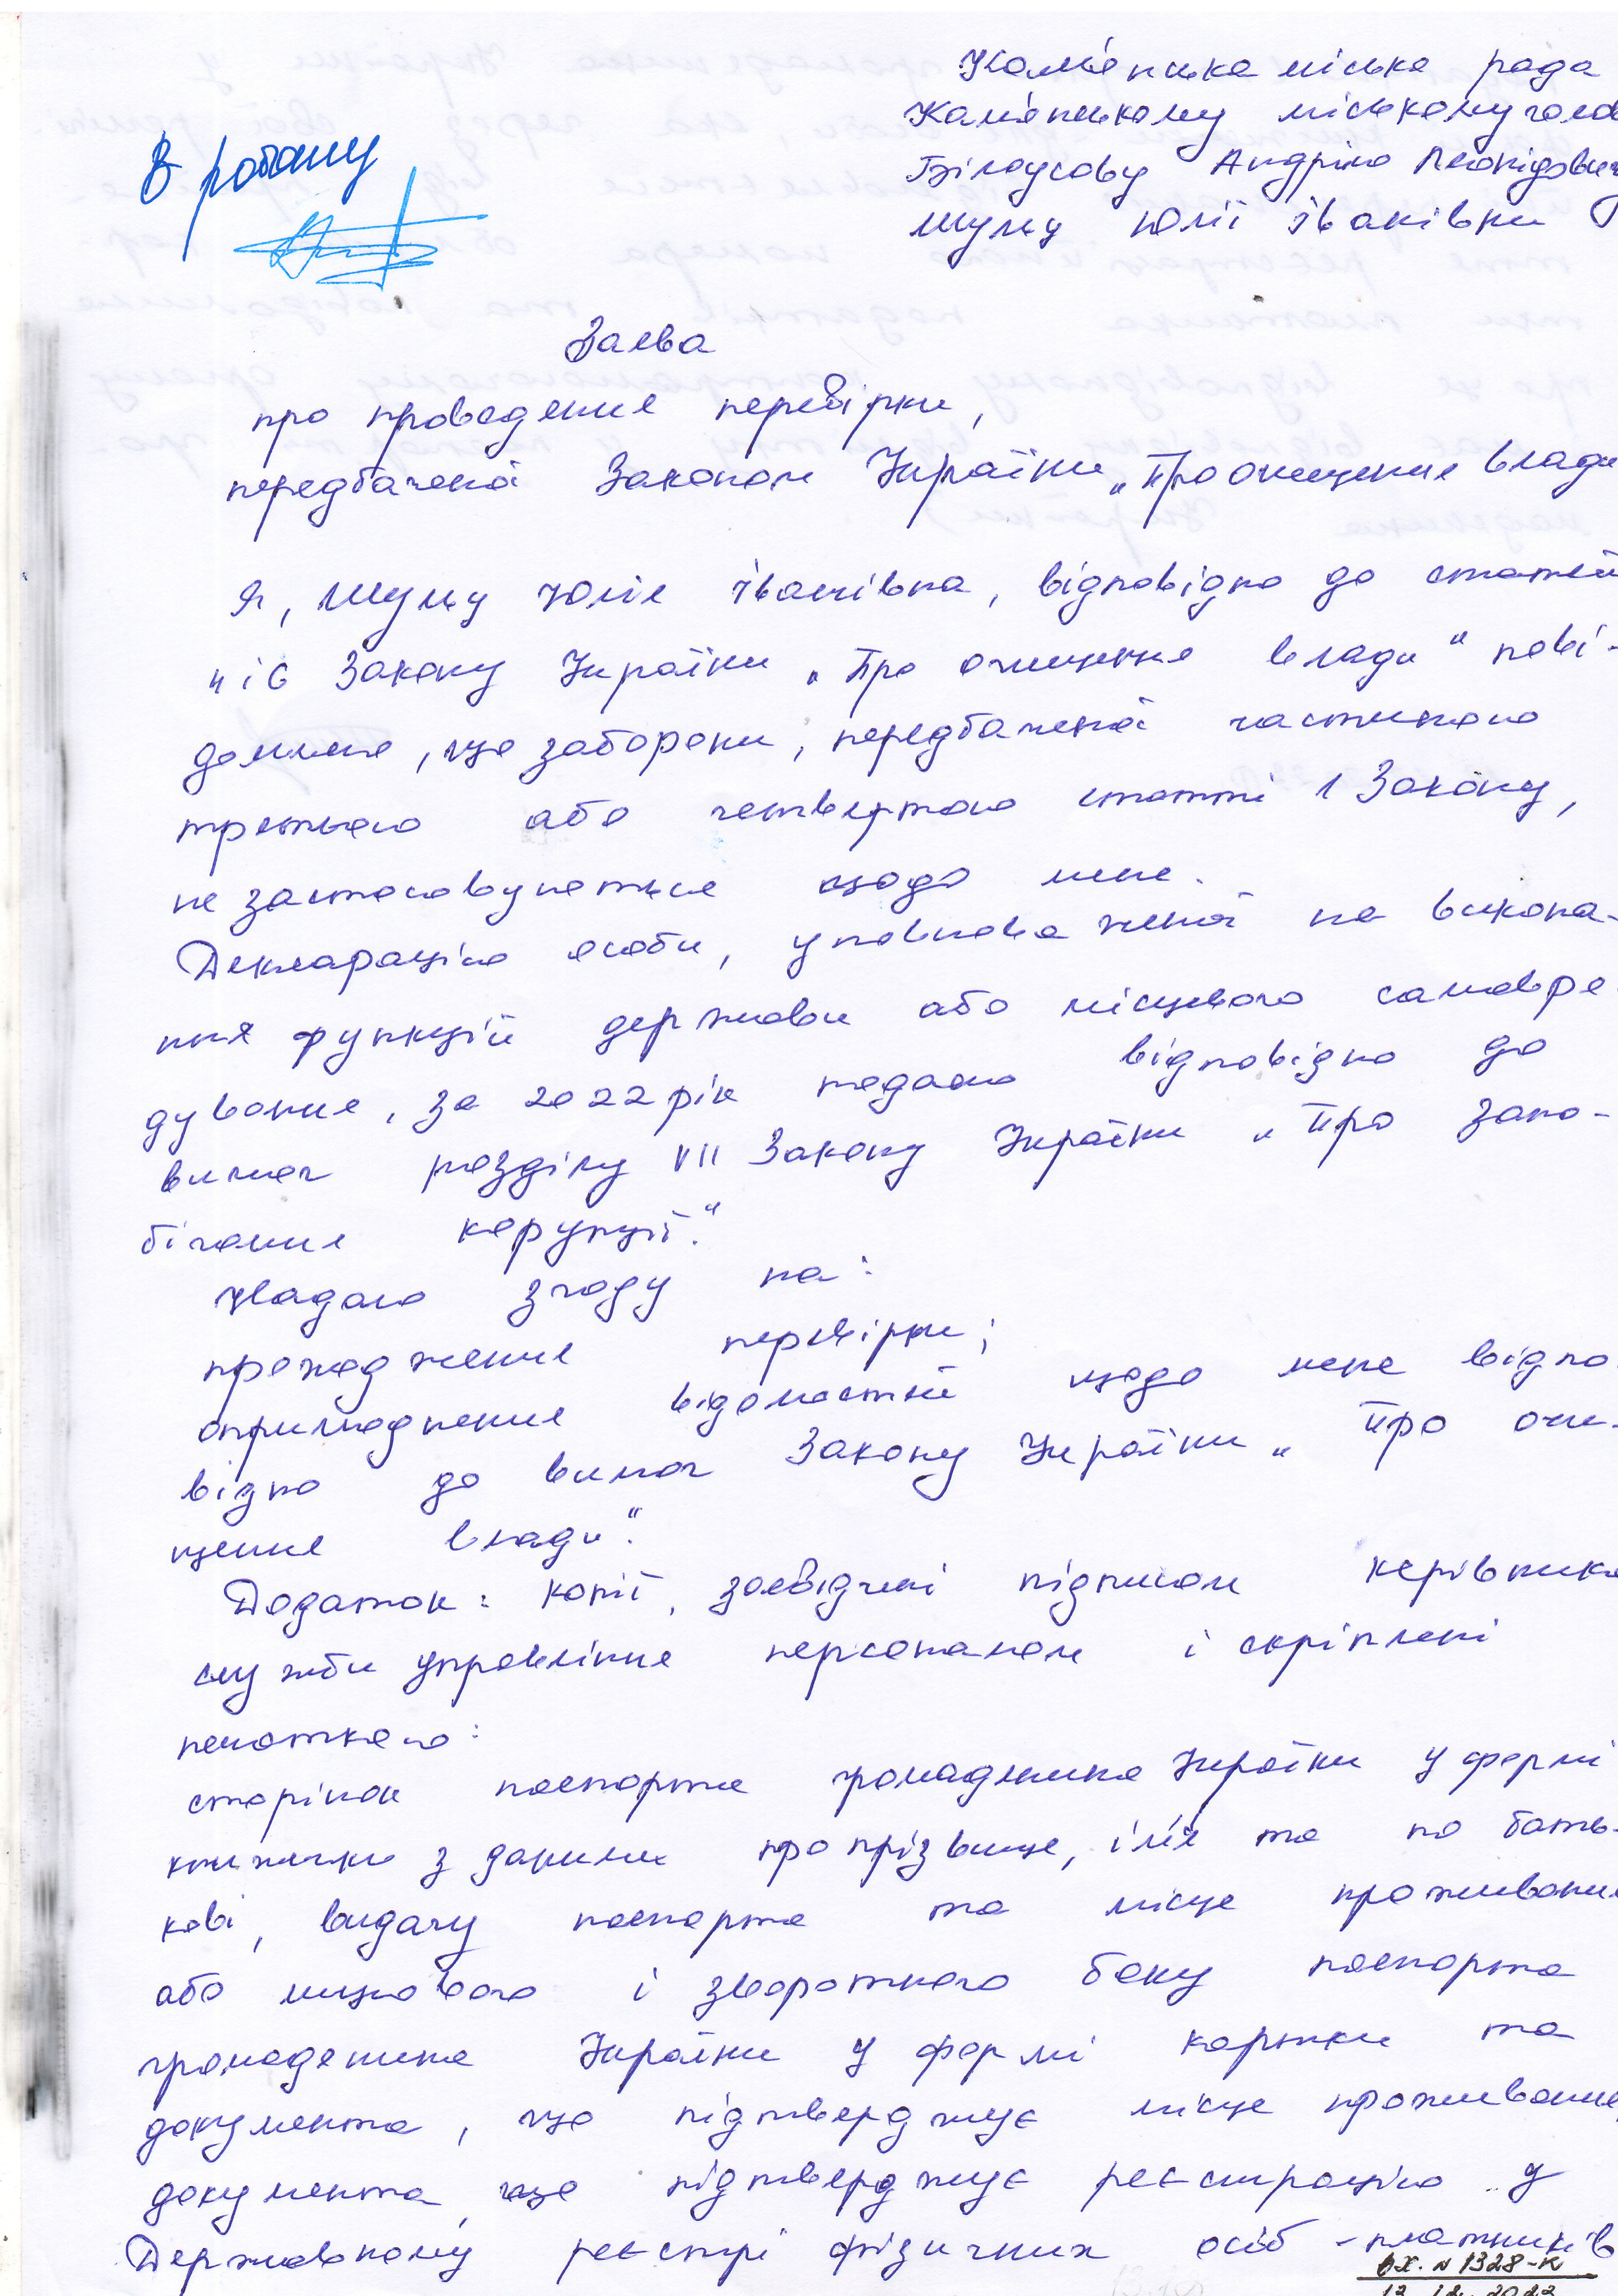 Кам'янська міська рада
Кам'янському міському голов
Білоусову Андрію Леонідович
Шульц Юлії Іванівни
В роботу
Заява
про проведення перевірки,
передбаченої Законом України „Про очищення влади
Я, Шульц Юлія Іванівна, відповідно до статей
4 і 6 Закону України „Про очищення влади" пові-
домляю, що заборони, передбаченої частиною
третьою або четвертою статті 1 Закону,
не застосовуються щодо мене.
Декларацію особи, уповноваженої на викона-
ння функцій держави або місцевого самовря-
дування, за 2022 рік подано відповідно до
вимог розділу VII Закону України „Про запо-
бігання корупції".
Надаю згоду на:
проходження перевірки;
оприлюднення відомостей щодо мене відпо-
відно до вимог Закону України „Про очи-
щення влади".
Додаток: копії, засвідчені підписом керівника
служби управління персоналом і скріплені
печаткою:
сторінок паспорта громадянина України у формі
книжечки з даними про прізвище, ім'я та по бать-
кові, видачу паспорта та місце проживання
або лицьового і зворотного боку паспорта
громадянина України у формі картки та
документа, що підтверджує місце проживання,
документа, що підтверджує реєстрацію у
Державному реєстрі фізичних осіб - платників
вх. № 1328-К
13.12.2023